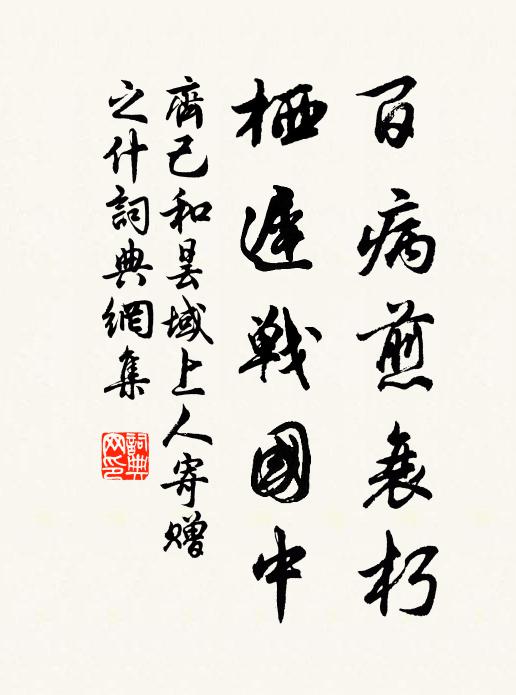 百病煎衰朽
栖遲戰國中
齊己和曇域上人寄贈
之什詞典網集
詞典
网印